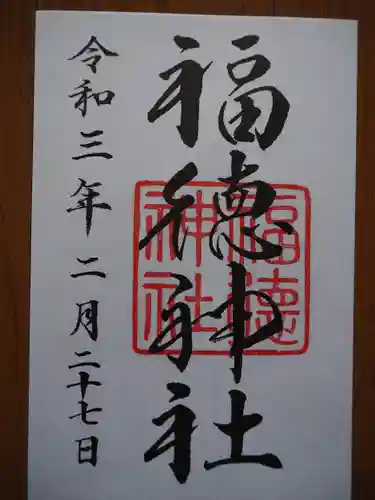 福徳神社
福德神社
令和三年二月二十七日